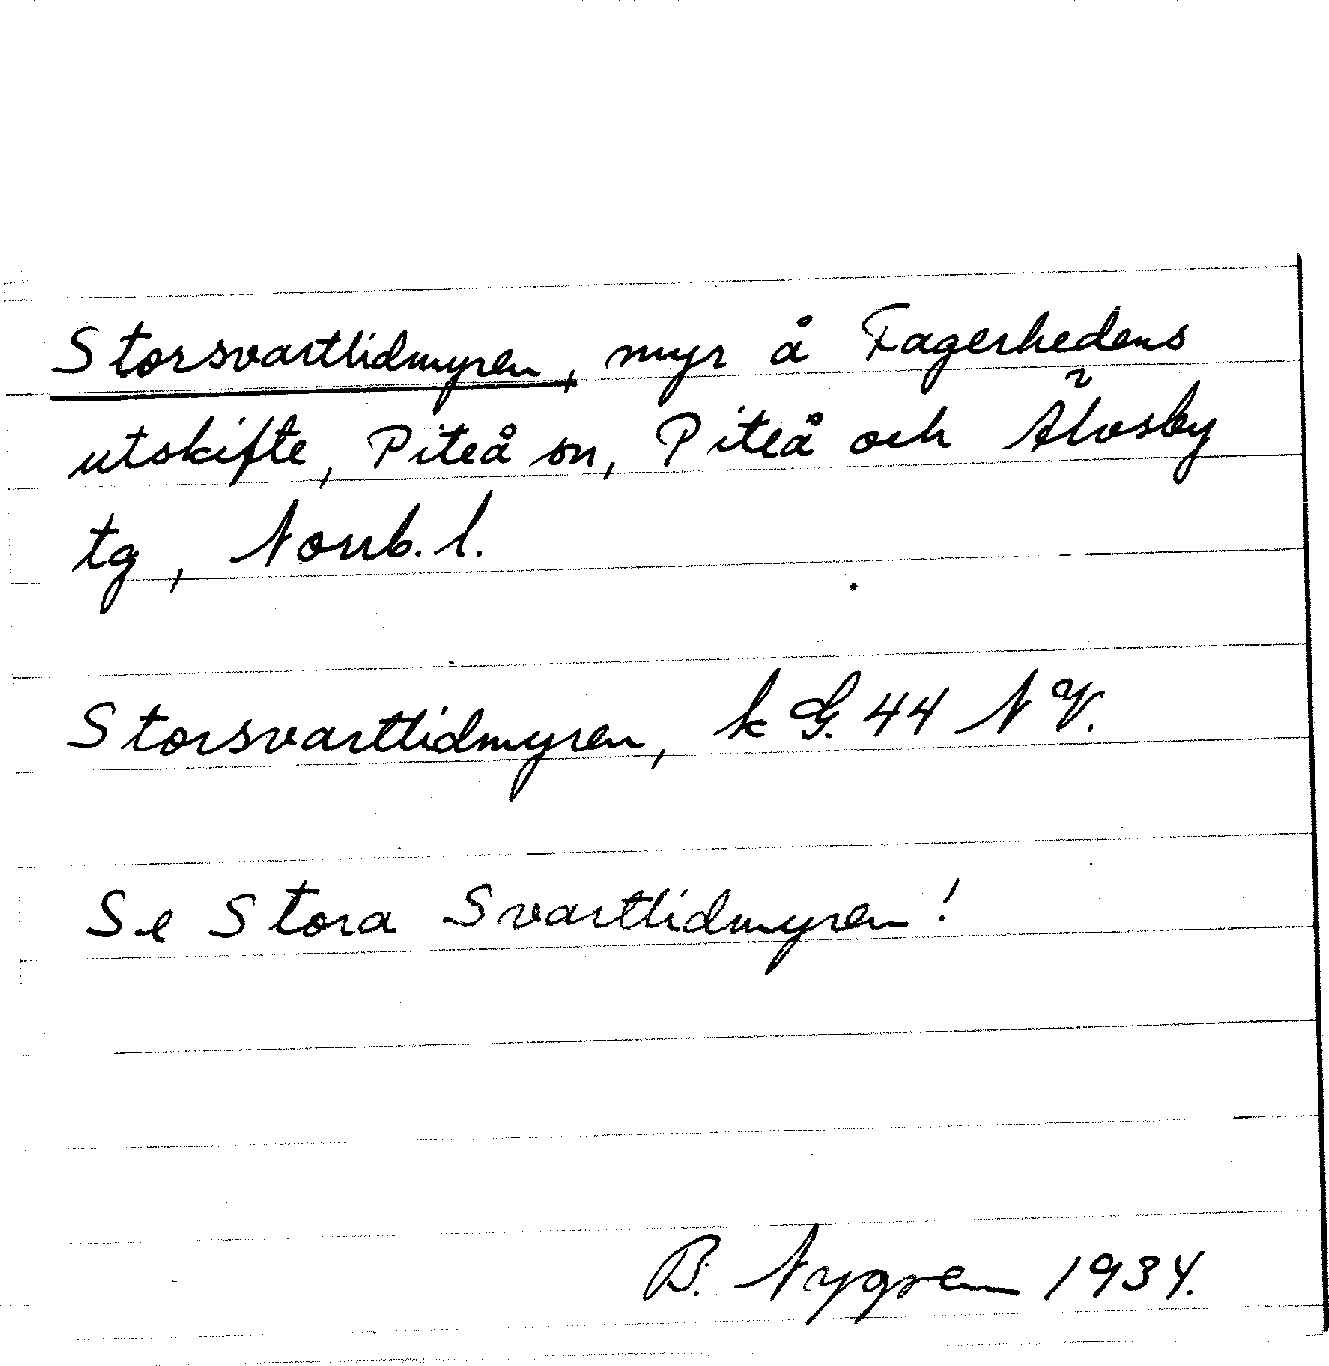 Storsvartlidmyren, myr å Fagerhedens
utskifte, Piteå sn, Piteå och Älvsby
tg, Norrb. l.
Storsvartlidmyren, k G. 44 NV.
Se Stora Svartlidmyren!
B. Nygren 1934.